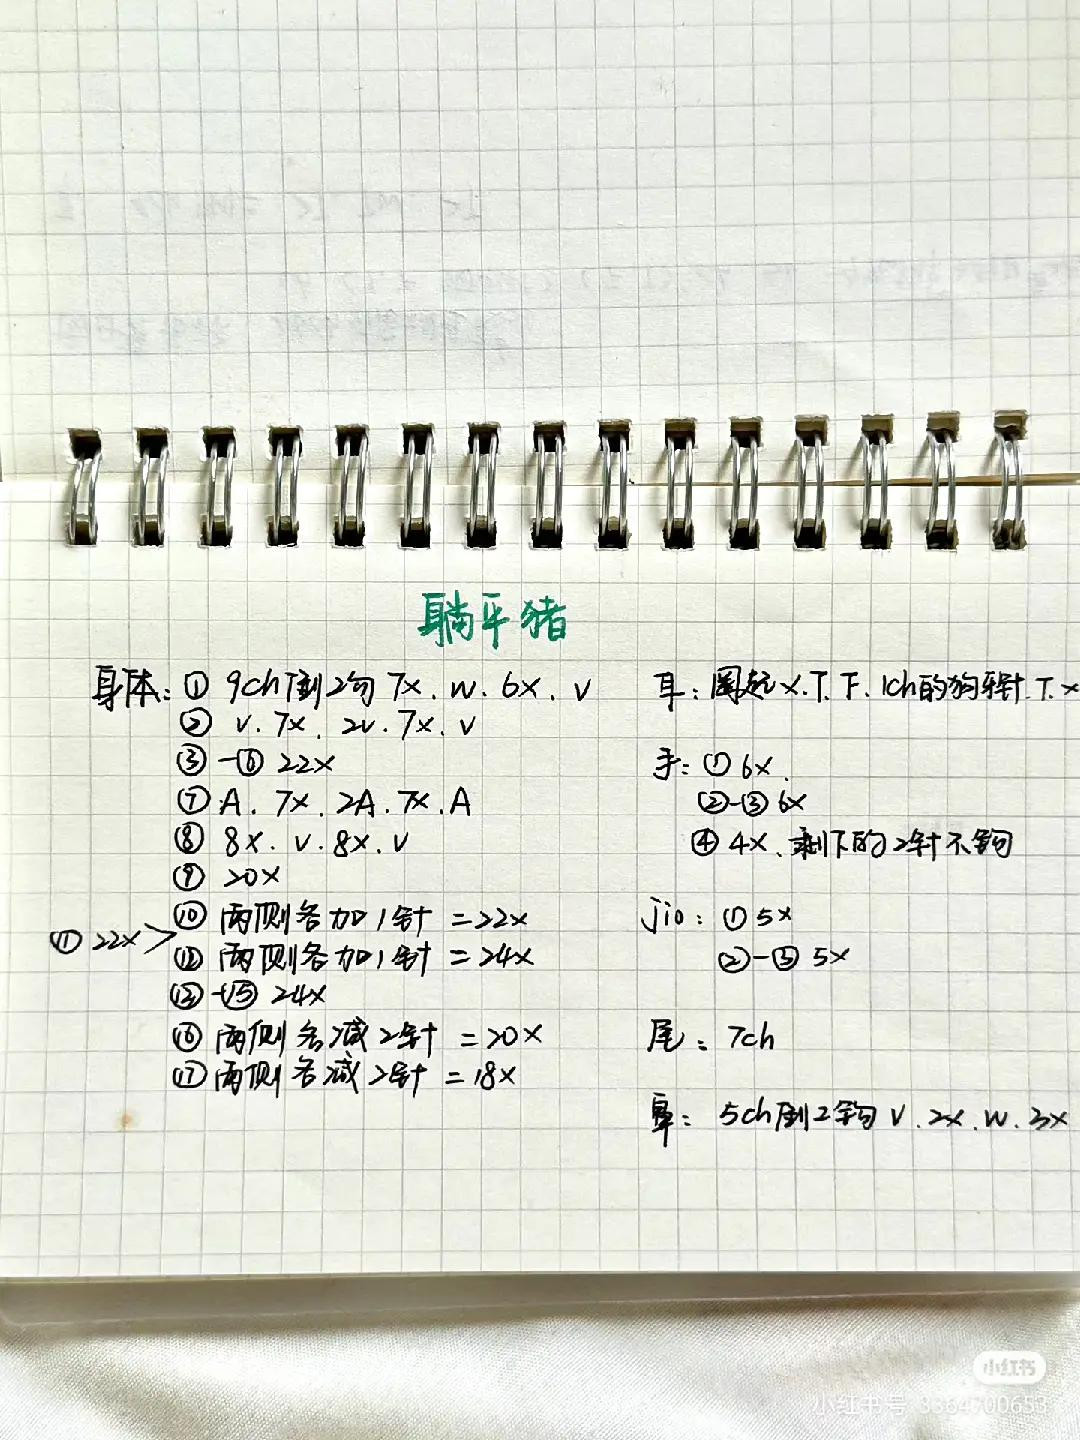 躺平猪
身体：① 9ch 倒2勾 7x、w、6x、v
② v、7x、2v、7x、v
③-⑥ 22x
⑦ A、7x、2A、7x、A
⑧ 8x、v、8x、v
⑨ 20x
⑩ 两侧各加1针 =22x
⑪ 22x >
⑫ 两侧各加1针 =24x
⑬-⑮ 24x
⑯ 两侧各减2针 =20x
⑰ 两侧各减2针 =18x
耳：圈起 x、T、F、1ch的狗牙针、T、x
手：① 6x、
②-③ 6x
④ 4x、剩下的2针不钩
jio：① 5x
②-③ 5x
尾：7ch
鼻：5ch 倒2钩 v、2x、w、3x
小红书
小红书号 3364700653